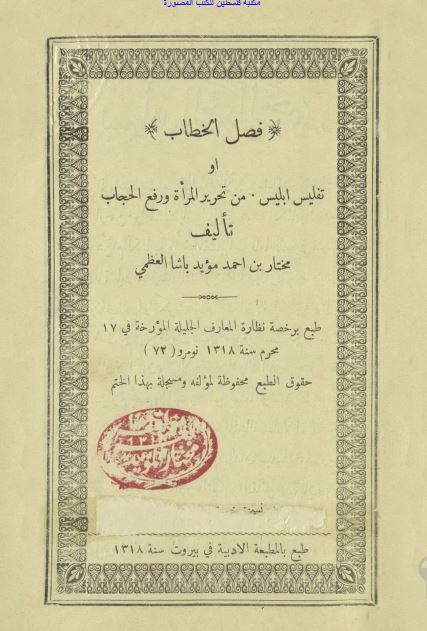 مكتبة فلسطين للكتب المصورة
فصل الخطاب
او
تفليس ابليس · من تحرير المرأة ورفع الحجاب
تأليف
مختار بن احمد مؤيد باشا العظمي
طبع برخصة نظارة المعارف الجليلة المؤرخة في ١٧
محرم سنة ١٣١٨ نومرو ( ٧٢ )
حقوق الطبع محفوظة لمؤلفه ومسجلة بهذا الختم
طبع بالمطبعة الادبية في بيروت سنة ١٣١٨